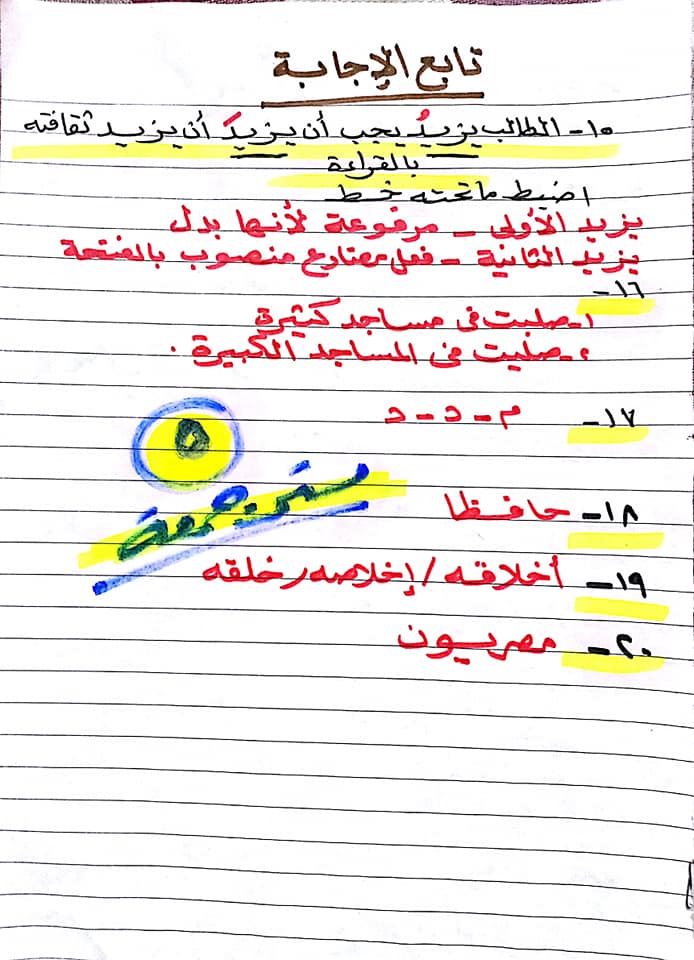 تابع الإجابة
١٠- الطالب يزيدُ يجب أن يزيدَ أن يزيد ثقافته
بالقراءة
اضبط ما تحته خط
يزيد الأولى - مرفوعة لأنها بدل
يزيد الثانية - فعل مضارع منصوب بالفتحة
١٦-
١- صليت فى مساجد كثيرة
٢- صليت فى المساجد الكبيرة .
١٧- م - د - د
٥
جمعة
١٨- حافظا
١٩- أخلاقه / إخلاصه رخلقه
٢٠- مصريون